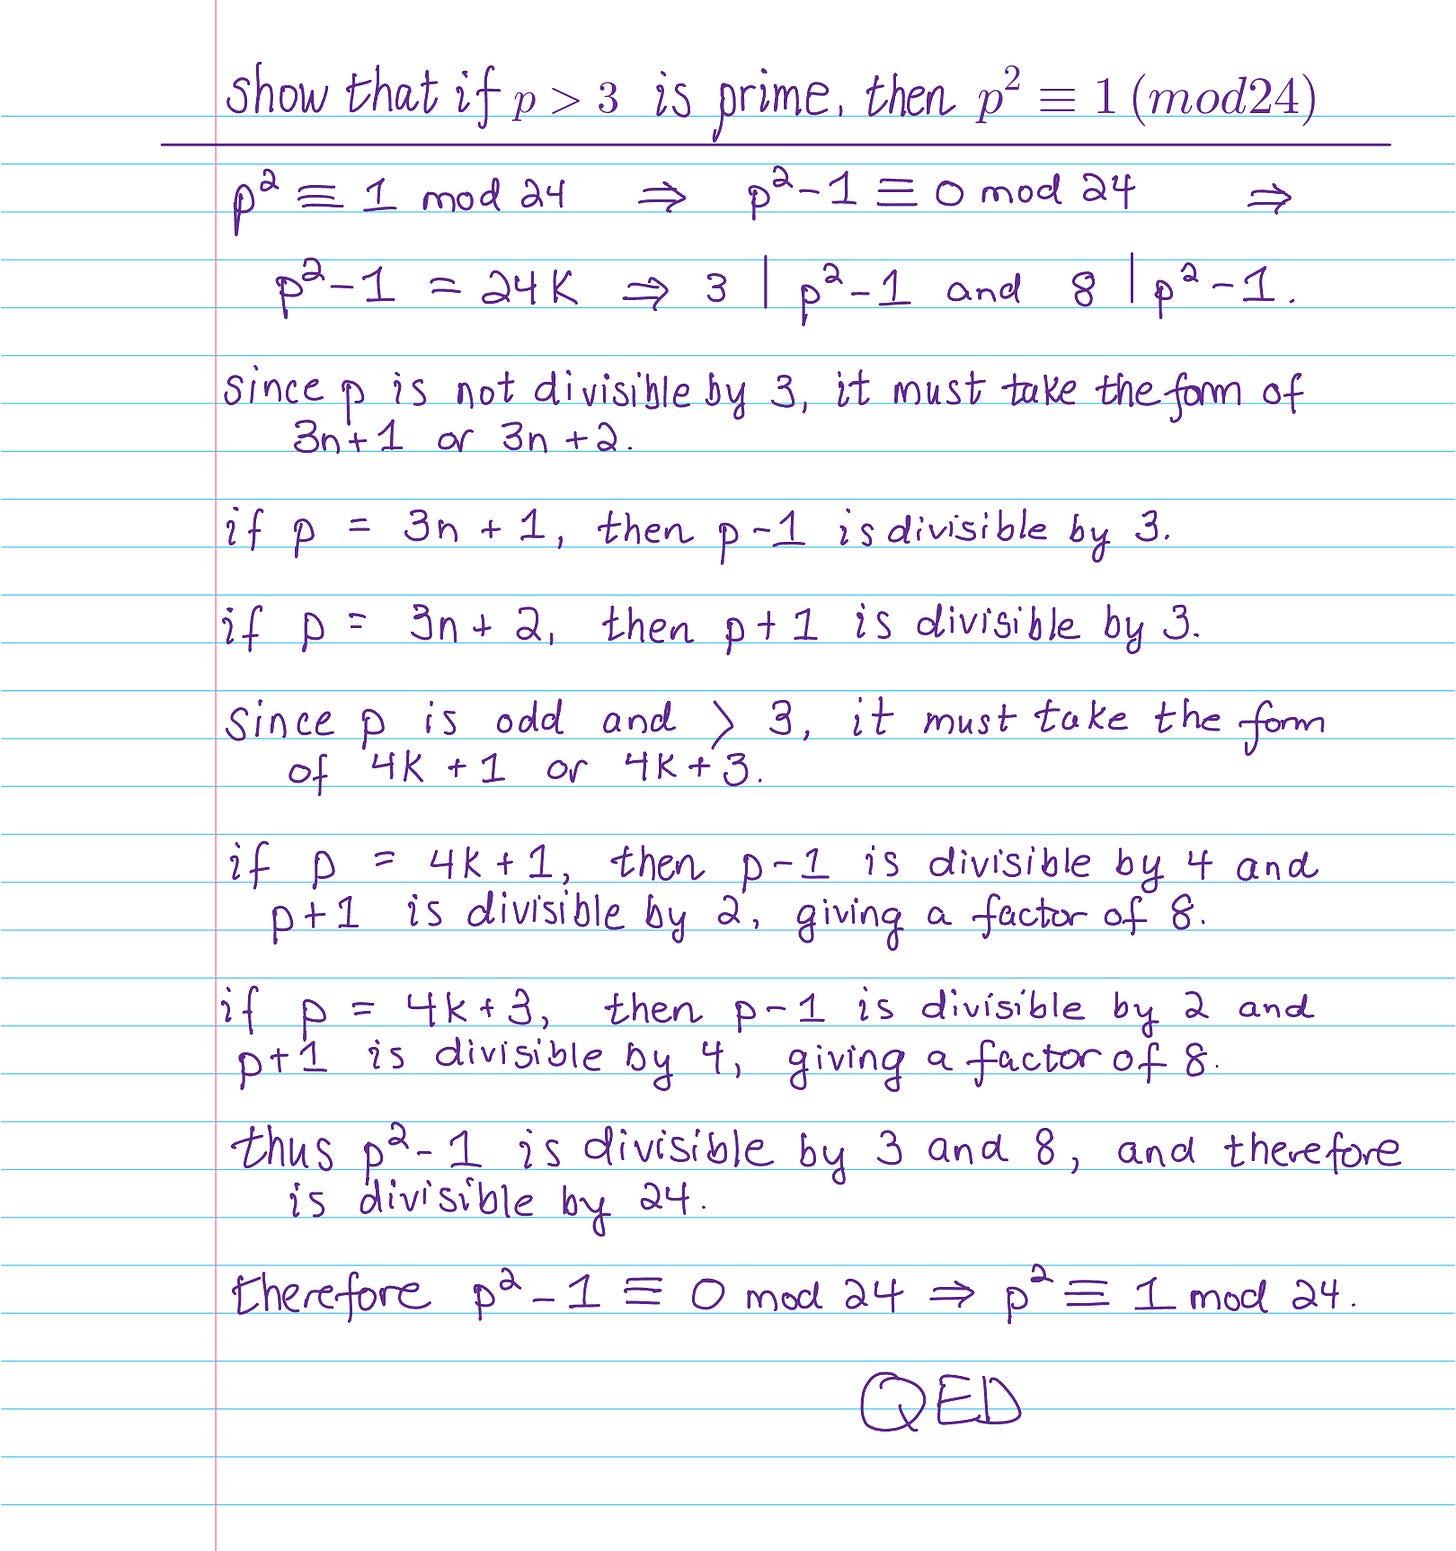 show that if p > 3 is prime, then p² ≡ 1 (mod24)
p² ≡ 1 mod 24 ⇒ p²-1 ≡ 0 mod 24 ⇒
p²-1 = 24K ⇒ 3 | p²-1 and 8 | p²-1.
since p is not divisible by 3, it must take the form of
3n+1 or 3n+2.
if p = 3n+1, then p-1 is divisible by 3.
if p = 3n+2, then p+1 is divisible by 3.
since p is odd and > 3, it must take the form
of 4K+1 or 4K+3.
if p = 4K+1, then p-1 is divisible by 4 and
p+1 is divisible by 2, giving a factor of 8.
if p = 4K+3, then p-1 is divisible by 2 and
p+1 is divisible by 4, giving a factor of 8.
thus p²-1 is divisible by 3 and 8, and therefore
is divisible by 24.
therefore p²-1 ≡ 0 mod 24 ⇒ p² ≡ 1 mod 24.
QED